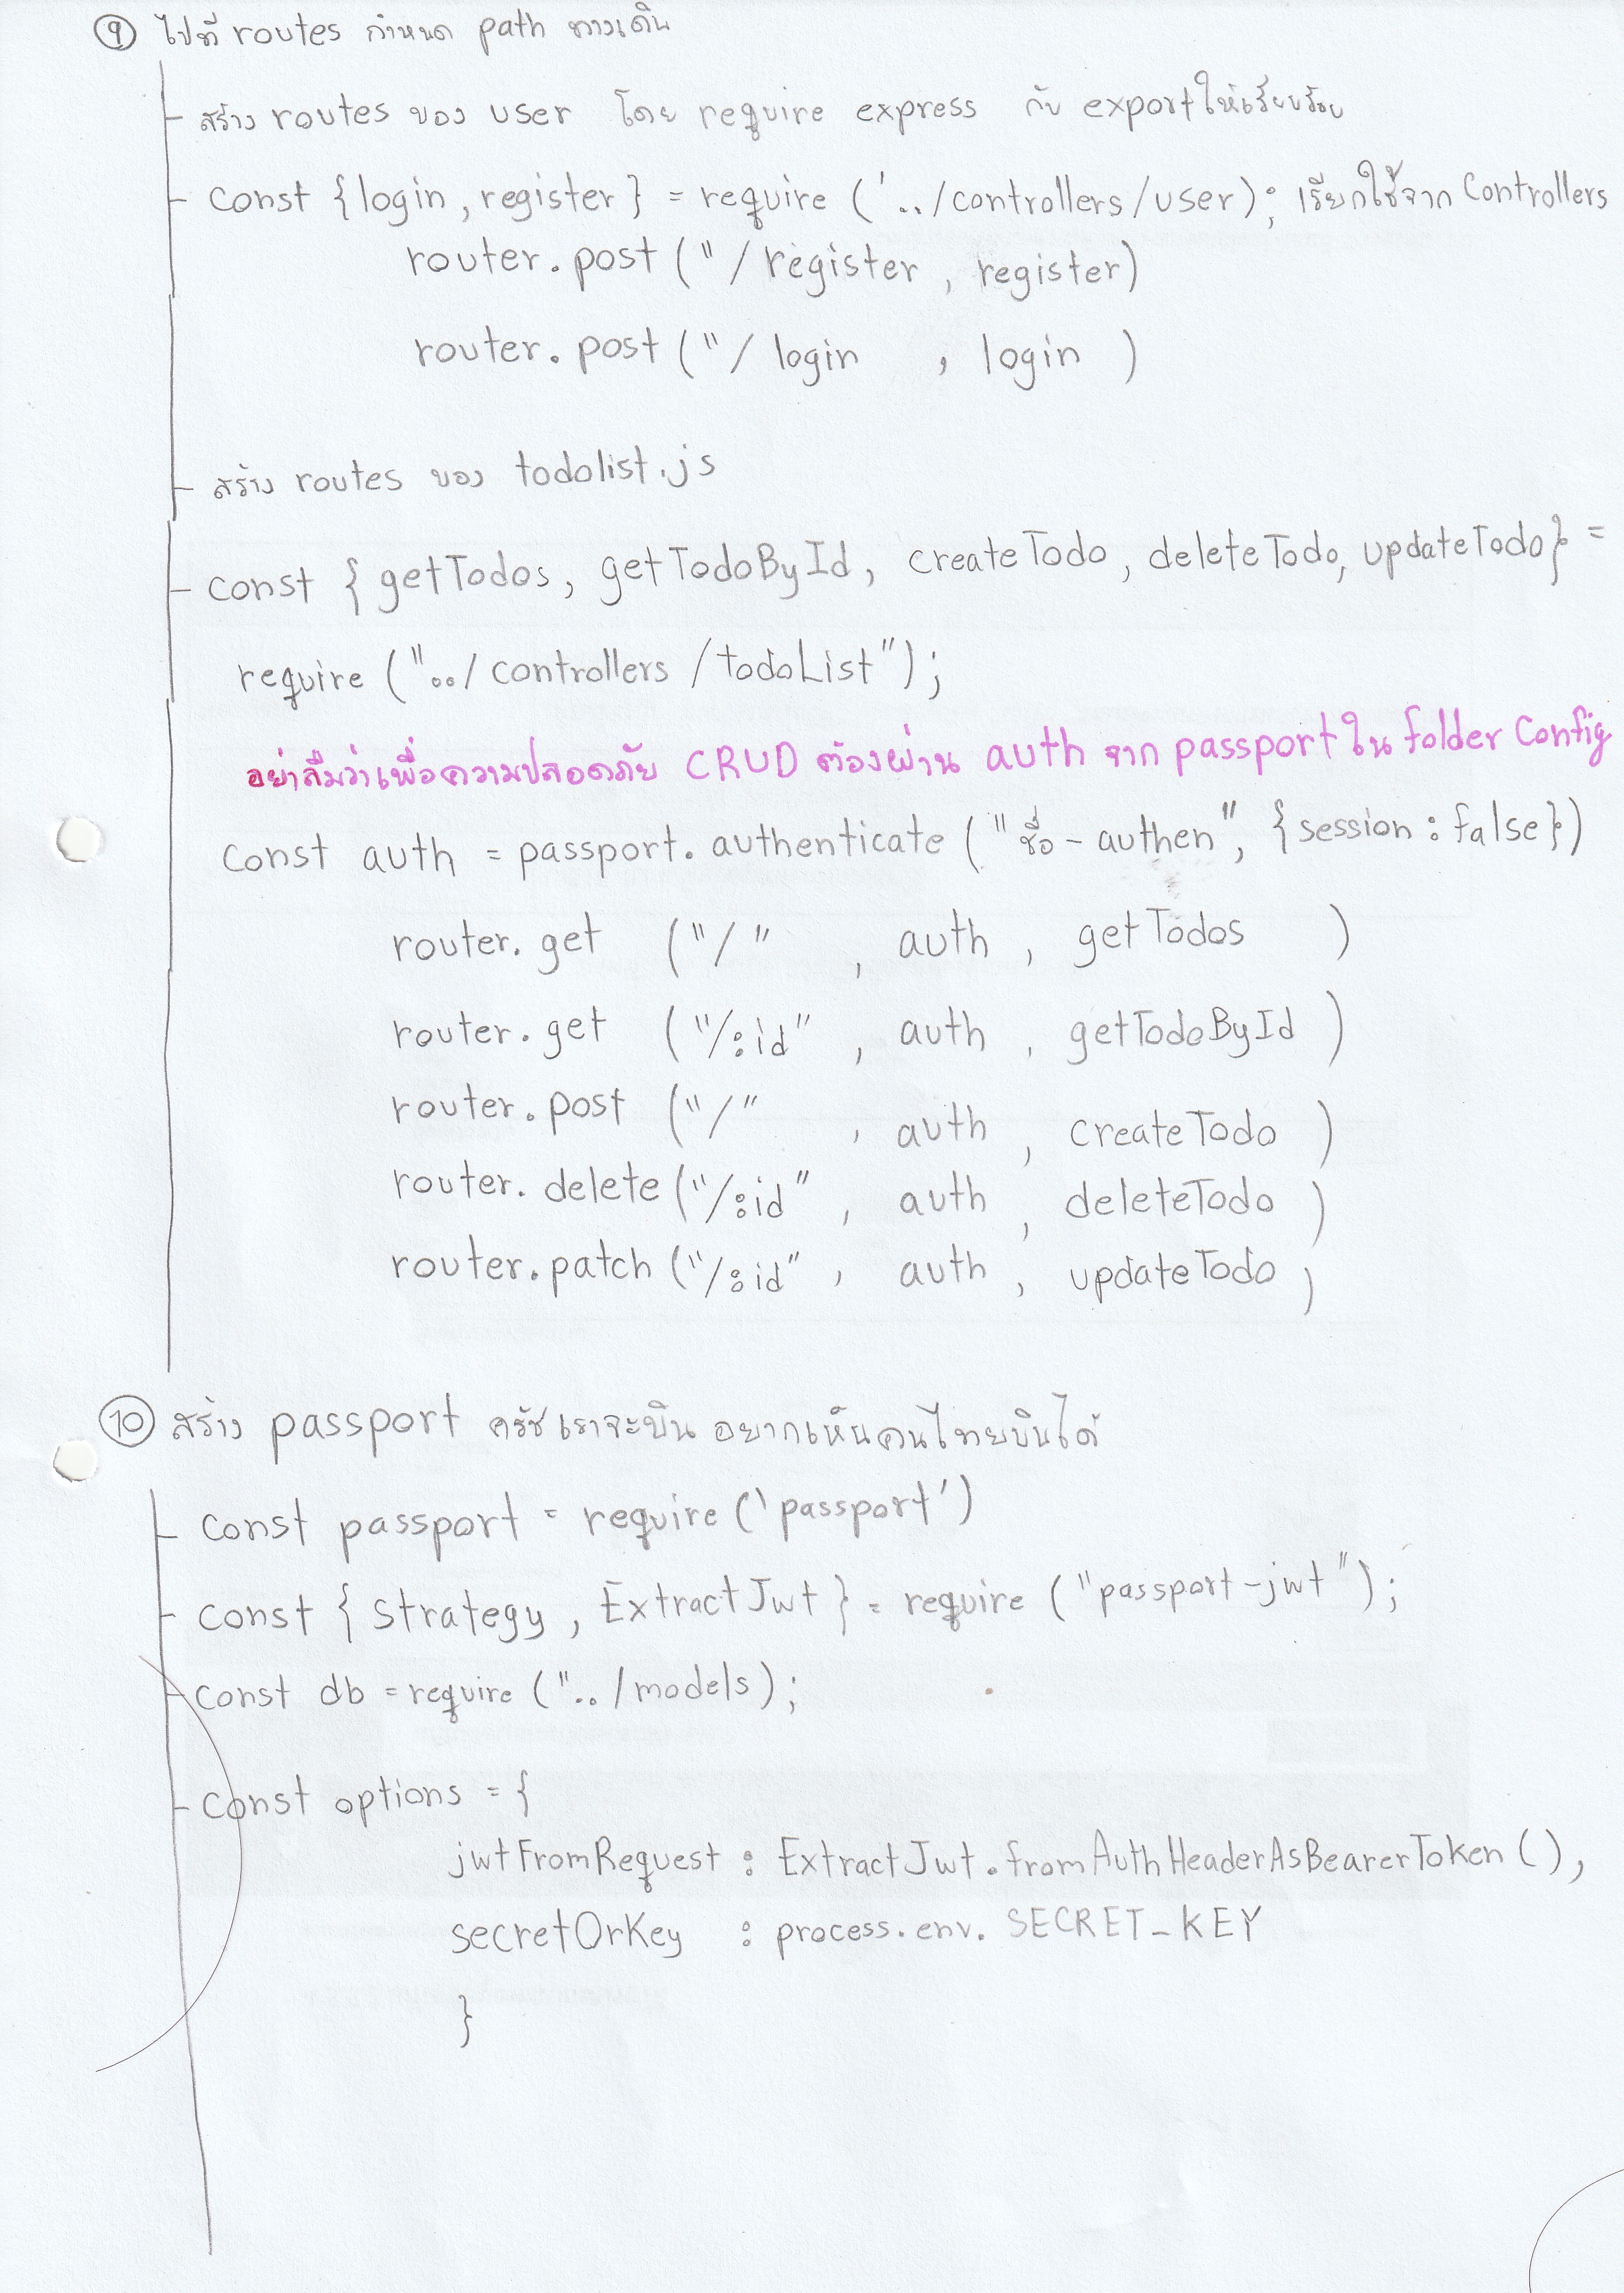 9 ไปที่ routes กำหนด path ทางเดิน
สร้าง routes ของ user โดย require express กับ export ให้เรียบร้อย
const { login , register } = require ('../controllers/user); เรียกใช้จาก Controllers
router.post ("/register , register)
router.post ("/login , login )
สร้าง routes ของ todolist.js
const { getTodos, getTodoById, createTodo, deleteTodo, updateTodo} =
require ("../controllers /todoList");
อย่าลืมว่าเพื่อความปลอดภัย CRUD ต้องผ่าน auth จาก passport ใน folder Config
const auth = passport.authenticate ("ชื่อ-authen", {session : false})
router.get ("/" , auth , getTodos )
router.get ("/:id" , auth , getTodoById )
router.post ("/" , auth , createTodo )
router.delete ("/:id" , auth , deleteTodo )
router.patch ("/:id" , auth , updateTodo )
10 สร้าง passport ครัช เราจะบิน อยากเห็นคนไทยบินได้
const passport = require ('passport')
const { Strategy , ExtractJwt } = require ("passport-jwt");
const db = require ("../models);
const options = {
jwtFromRequest : ExtractJwt.fromAuthHeaderAsBearerToken (),
secretOrKey : process.env.SECRET_KEY
}